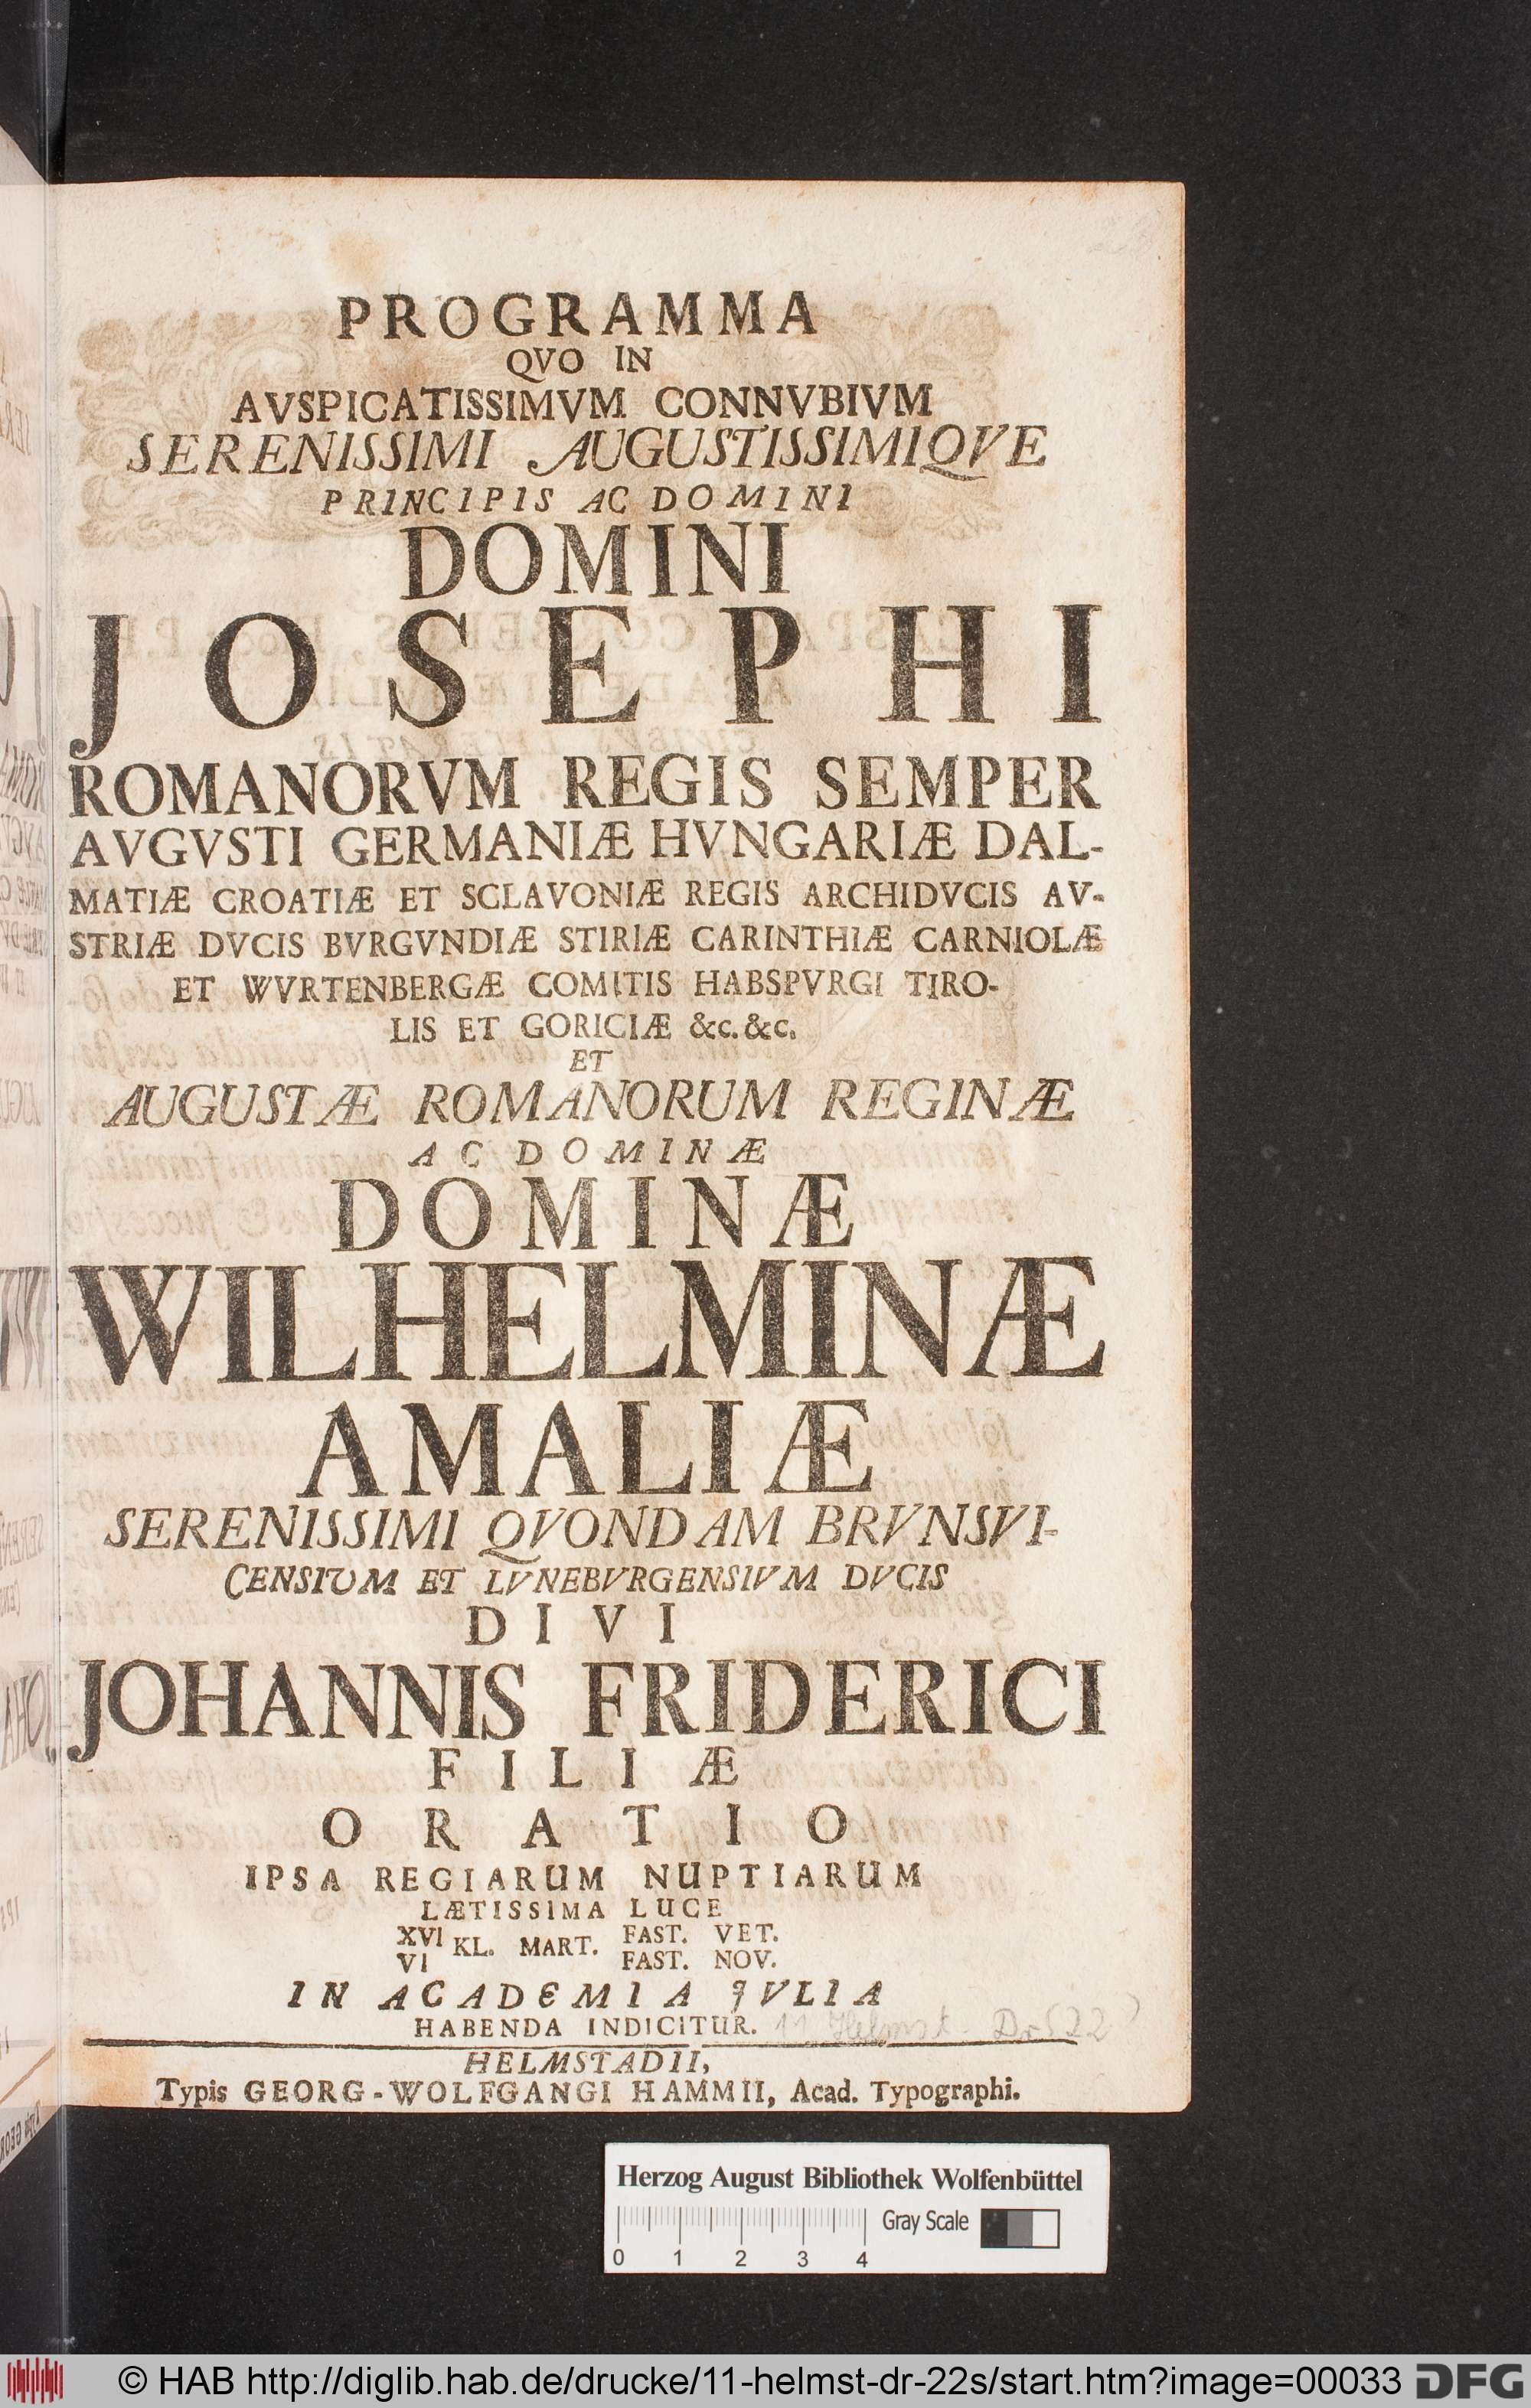 PROGRAMMA
QVO IN
AVSPICATISSIMVM CONNVBIVM
SERENISSIMI AUGUSTISSIMIQVE
PRINCIPIS AC DOMINI
DOMINI
JOSEPHI
ROMANORVM REGIS SEMPER
AVGVSTI GERMANIÆ HVNGARIÆ DAL-
MATIÆ CROATIÆ ET SCLAVONIÆ REGIS ARCHIDVCIS AV-
STRIÆ DVCIS BVRGVNDIÆ STIRIÆ CARINTHIÆ CARNIOLÆ
ET WVRTENBERGÆ COMITIS HABSPVRGI TIRO-
LIS ET GORICIÆ &c. &c.
ET
AUGUSTÆ ROMANORUM REGINÆ
AC DOMINÆ
DOMINÆ
WILHELMINÆ
AMALIÆ
SERENISSIMI QVONDAM BRVNSVI-
CENSIUM ET LVNEBVRGENSIVM DVCIS
DIVI
JOHANNIS FRIDERICI
FILIÆ
ORATIO
IPSA REGIARUM NUPTIARUM
LÆTISSIMA LUCE
XVI KL. MART. FAST. VET.
VI FAST. NOV.
IN ACADEMIA JVLIA
HABENDA INDICITUR.
11 Helmst. Dr (22)
HELMSTADII,
Typis GEORG-WOLFGANGI HAMMII, Acad. Typographi.
Herzog August Bibliothek Wolfenbüttel
Gray Scale
0 1 2 3 4
© HAB http://diglib.hab.de/drucke/11-helmst-dr-22s/start.htm?image=00033 DFG